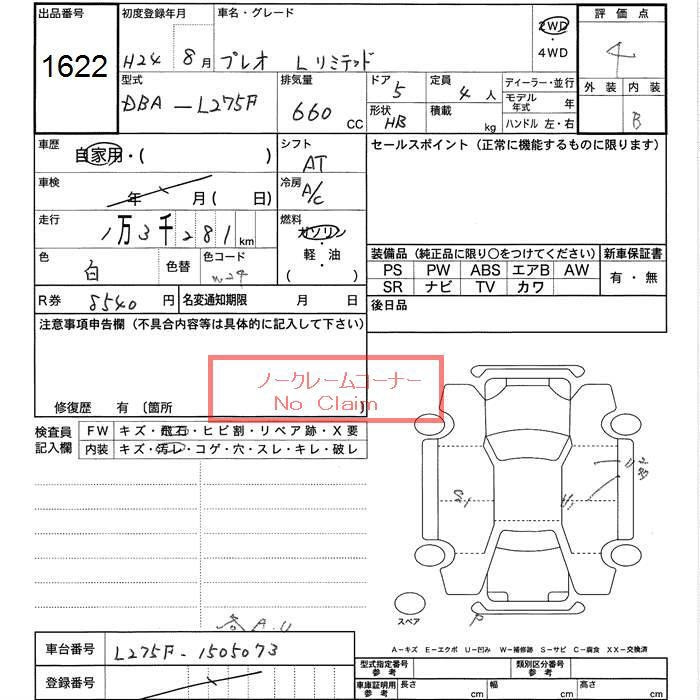 出品番号 初度登録年月 車名・グレード 2WD 評価点
1622 H24 8月 プレオ Lリミテッド ・4WD 4
型式 排気量 ドア 定員 ディーラー・並行 外装 内装
DBA-L275F 660 CC 5 4人 モデル年式 年 B
形状 HB 積載 kg ハンドル 左・右
車歴 自家用・( ) シフト AT セールスポイント(正常に機能するものに限ります)
車検 年 月( 日) 冷房 A/C
走行 1万3千281km 燃料 ガソリン
・
軽・油
( )
色 白 色替 色コード W24
装備品(純正品に限り○をつけてください) 新車保証書
PS PW ABS エアB AW 有・無
SR ナビ TV カワ
R券 8540円 名変通知期限 月 日 後日品
注意事項申告欄(不具合内容等は具体的に記入して下さい)
ノークレームコーナー
No Claim
修復歴 有〔箇所
検査員記入欄 FW キズ・飛石・ヒビ割・リペア跡・X要
内装 キズ・汚レ・コゲ・穴・スレ・キレ・破レ
各A.U
スペア
P
A-キズ E-エクボ U-凹み W-補修跡 S-サビ C-腐食 XX-交換済
車台番号 L275F-1505073
型式指定番号 参考 類別区分番号 参考
登録番号
車庫証明用 参考 長さ cm 幅 cm 高さ cm